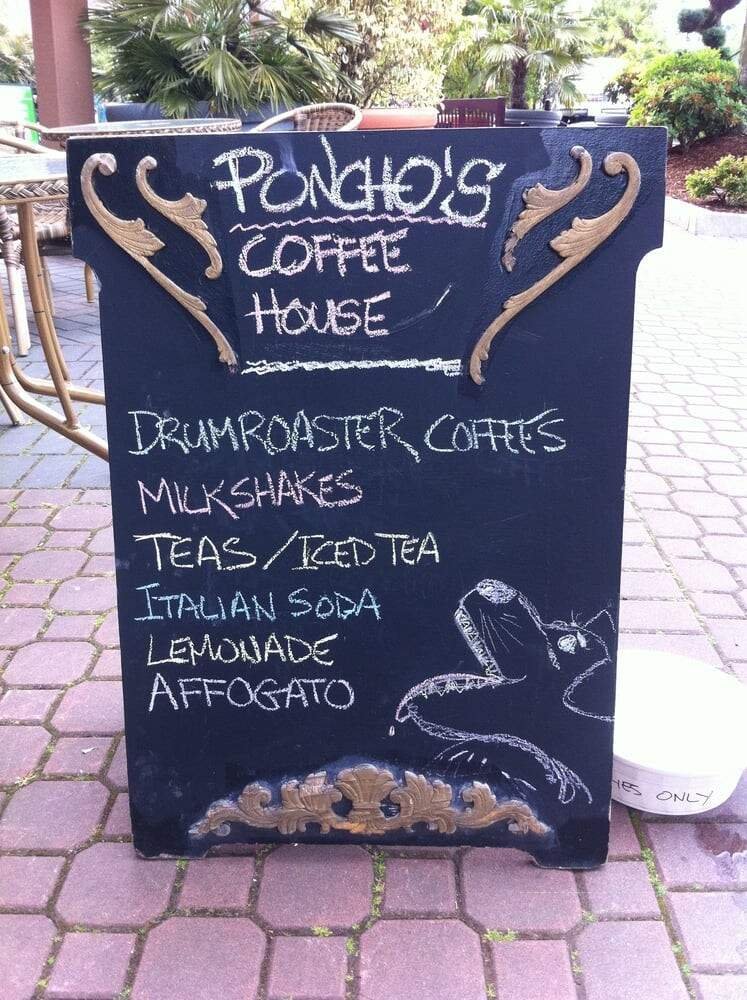 PONCHO'S
COFFEE
HOUSE
DRUMROASTER COFFEES
MILKSHAKES
TEAS/ICED TEA
ITALIAN SODA
LEMONADE
AFFOGATO
ONLY